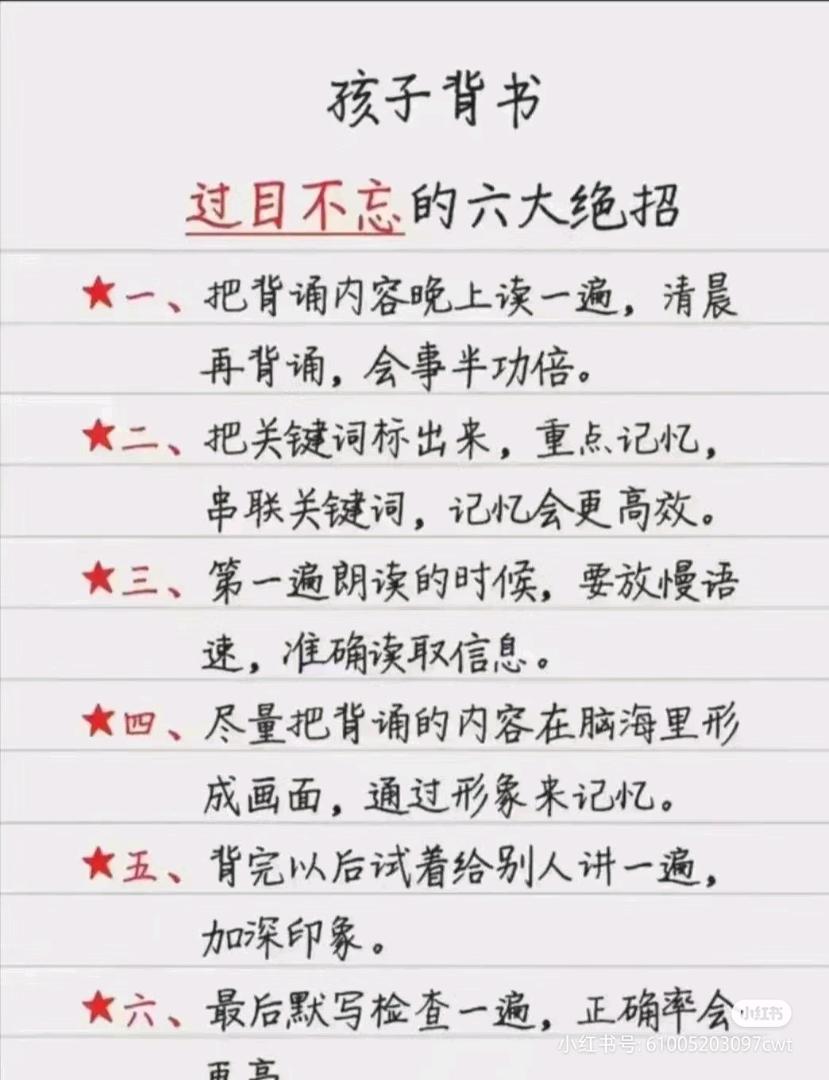 孩子背书
过目不忘的六大绝招
★一、把背诵内容晚上读一遍，清晨
再背诵，会事半功倍。
★二、把关键词标出来，重点记忆，
串联关键词，记忆会更高效。
★三、第一遍朗读的时候，要放慢语
速，准确读取信息。
★四、尽量把背诵的内容在脑海里形
成画面，通过形象来记忆。
★五、背完以后试着给别人讲一遍，
加深印象。
★六、最后默写检查一遍，正确率会
小红书
小红书号: 61005203097cwt
更高